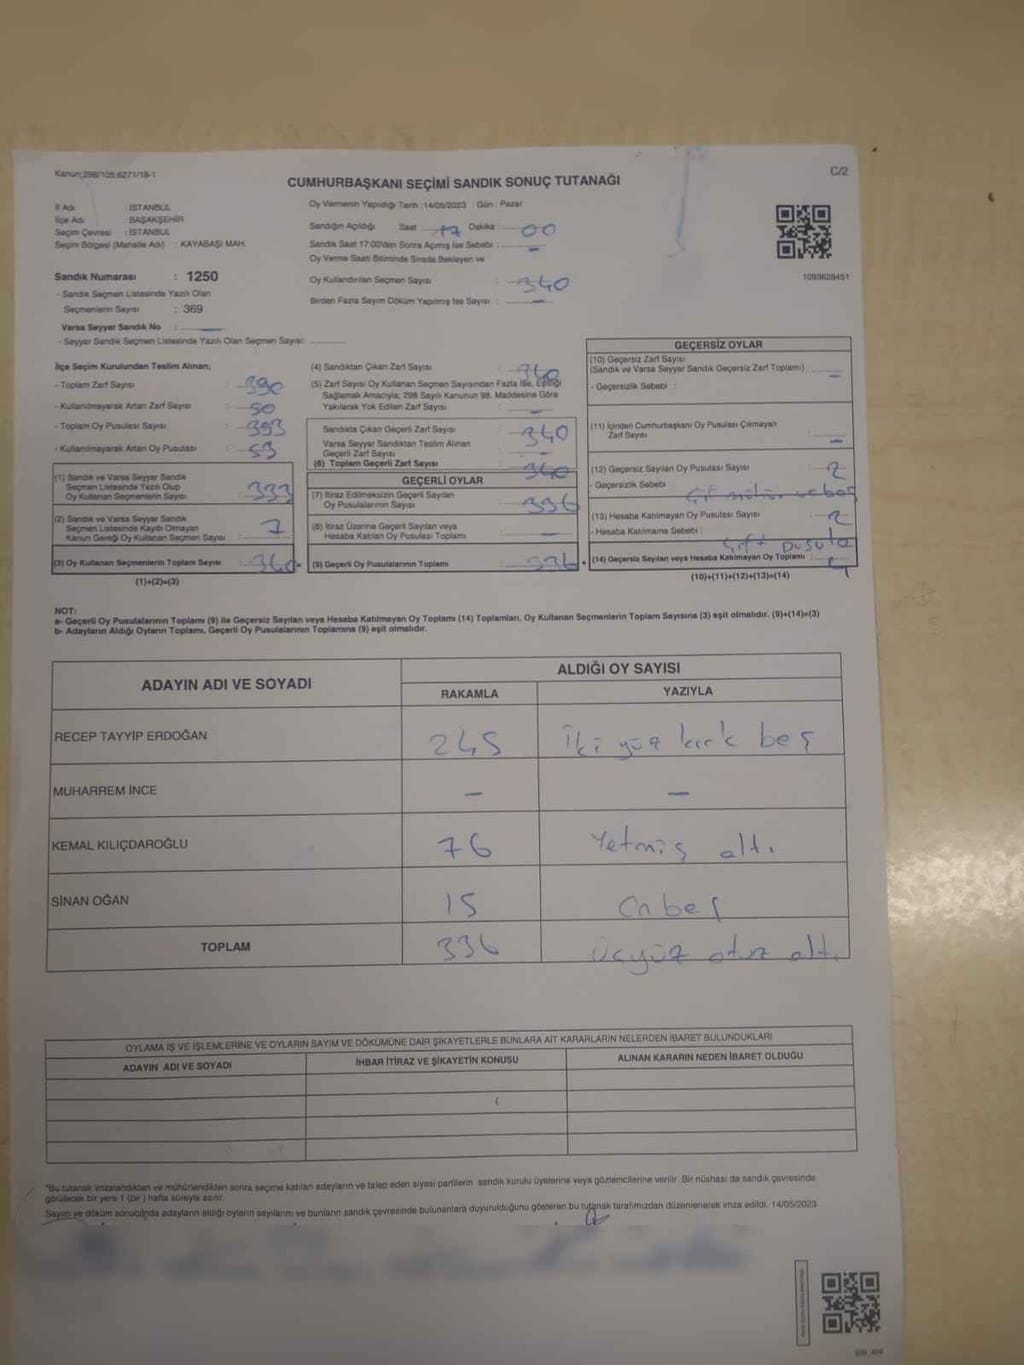 Kanun:298/105;6271/18-1
C/2
CUMHURBAŞKANI SEÇİMİ SANDIK SONUÇ TUTANAĞI
İl Adı : İSTANBUL
İlçe Adı : BAŞAKŞEHİR
Seçim Çevresi : İSTANBUL
Seçim Bölgesi (Mahalle Adı) : KAYABAŞI MAH.
Sandık Numarası : 1250
- Sandık Seçmen Listesinde Yazılı Olan
Seçmenlerin Sayısı : 369
Varsa Seyyar Sandık No : —
- Seyyar Sandık Seçmen Listesinde Yazılı Olan Seçmen Sayısı:
Oy Vermenin Yapıldığı Tarih : 14/05/2023 Gün : Pazar
Sandığın Açıldığı Saat : 17 Dakika : 00
Sandık Saat 17:00'den Sonra Açılmış İse Sebebi : —
Oy Verme Saati Bitiminde Sırada Bekleyen ve
Oy Kullandırılan Seçmen Sayısı : 340
Birden Fazla Sayım Döküm Yapılmış İse Sayısı : —
1093628451
İlçe Seçim Kurulundan Teslim Alınan;
- Toplam Zarf Sayısı : 390
- Kullanılmayarak Artan Zarf Sayısı : 50
- Toplam Oy Pusulası Sayısı : 393
- Kullanılmayarak Artan Oy Pusulası : 53
(1) Sandık ve Varsa Seyyar Sandık
Seçmen Listesinde Yazılı Olup
Oy Kullanan Seçmenlerin Sayısı : 333
(2) Sandık ve Varsa Seyyar Sandık
Seçmen Listesinde Kaydı Olmayan
Kanun Gereği Oy Kullanan Seçmen Sayısı : 7
(3) Oy Kullanan Seçmenlerin Toplam Sayısı : 340
(1)+(2)=(3)
(4) Sandıktan Çıkan Zarf Sayısı : 340
(5) Zarf Sayısı Oy Kullanan Seçmen Sayısından Fazla İse, Eşitliği
Sağlamak Amacıyla; 298 Sayılı Kanunun 98. Maddesine Göre
Yakılarak Yok Edilen Zarf Sayısı : —
Sandıkta Çıkan Geçerli Zarf Sayısı : 340
Varsa Seyyar Sandıktan Teslim Alınan
Geçerli Zarf Sayısı : —
(6) Toplam Geçerli Zarf Sayısı : 340
GEÇERLİ OYLAR
(7) İtiraz Edilmeksizin Geçerli Sayılan
Oy Pusulalarının Sayısı : 336
(8) İtiraz Üzerine Geçerli Sayılan veya
Hesaba Katılan Oy Pusulası Toplamı : —
(9) Geçerli Oy Pusulalarının Toplamı : 336
GEÇERSİZ OYLAR
(10) Geçersiz Zarf Sayısı
(Sandık ve Varsa Seyyar Sandık Geçersiz Zarf Toplamı) : —
- Geçersizlik Sebebi :
(11) İçinden Cumhurbaşkanı Oy Pusulası Çıkmayan
Zarf Sayısı : —
(12) Geçersiz Sayılan Oy Pusulası Sayısı : 2
- Geçersizlik Sebebi : çift mühür ve boş
(13) Hesaba Katılmayan Oy Pusulası Sayısı : 2
- Hesaba Katılmama Sebebi : çift pusula
(14) Geçersiz Sayılan veya Hesaba Katılmayan Oy Toplamı : 4
(10)+(11)+(12)+(13)=(14)
NOT:
a- Geçerli Oy Pusulalarının Toplamı (9) ile Geçersiz Sayılan veya Hesaba Katılmayan Oy Toplamı (14) Toplamları, Oy Kullanan Seçmenlerin Toplam Sayısına (3) eşit olmalıdır. (9)+(14)=(3)
b- Adayların Aldığı Oyların Toplamı, Geçerli Oy Pusulalarının Toplamına (9) eşit olmalıdır.
ADAYIN ADI VE SOYADI ALDIĞI OY SAYISI
RAKAMLA YAZIYLA
RECEP TAYYİP ERDOĞAN 245 İki yüz kırk beş
MUHARREM İNCE — —
KEMAL KILIÇDAROĞLU 76 Yetmiş altı
SİNAN OĞAN 15 Onbeş
TOPLAM 336 Üçyüz otuz altı
OYLAMA İŞ VE İŞLEMLERİNE VE OYLARIN SAYIM VE DÖKÜMÜNE DAİR ŞİKAYETLERLE BUNLARA AİT KARARLARIN NELERDEN İBARET BULUNDUKLARI
ADAYIN ADI VE SOYADI İHBAR İTİRAZ VE ŞİKAYETİN KONUSU ALINAN KARARIN NEDEN İBARET OLDUĞU
*Bu tutanak imzalandıktan ve mühürlendikten sonra seçime katılan adayların ve talep eden siyasi partilerin sandık kurulu üyelerine veya gözlemcilerine verilir. Bir nüshası da sandık çevresinde
görülecek bir yere 1 (bir ) hafta süreyle asılır.
Sayım ve döküm sonucunda adayların aldığı oyların sayılarını ve bunların sandık çevresinde bulunanlara duyurulduğunu gösteren bu tutanak tarafımızdan düzenlenerek imza edildi. 14/05/2023